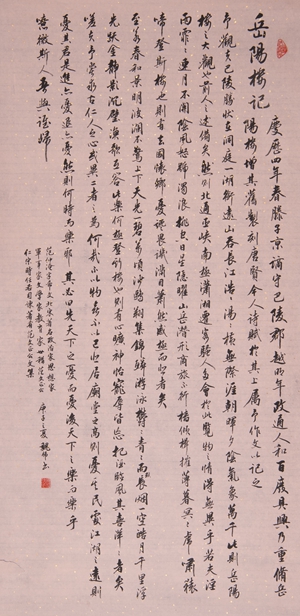 岳陽樓記 慶曆四年春滕子京謫守巴陵郡越明年政通人和百廢具興乃重脩岳
陽樓增其舊製刻唐賢今人詩賦於其上屬予作文以記之
予觀夫巴陵勝狀在洞庭一湖銜遠山吞長江浩浩湯湯橫無際涯朝暉夕陰氣象萬千此則岳陽
樓之大觀也前人之述備矣然則北通巫峽南極瀟湘遷客騷人多會於此覽物之情得無異乎若夫淫
雨霏霏連月不開陰風怒號濁浪排空日星隱曜山岳潛形商旅不行檣傾楫摧薄暮冥冥虎嘯猿
啼登斯樓也則有去國懷鄉憂讒畏譏滿目蕭然感極而悲者矣
至若春和景明波瀾不驚上下天光一碧萬頃沙鷗翔集錦鱗游泳郁郁青青而長煙一空皓月千里浮
光躍金靜影沉璧漁歌互答此樂何極登斯樓也則有心曠神怡寵辱皆忘把酒臨風其喜洋洋者矣
嗟夫予嘗求古仁人之心或異二者之為何哉不以物喜不以己悲居廟堂之高則憂其民處江湖之遠則
憂其君是進亦憂退亦憂然則何時而樂耶其必曰先天下之憂而憂後天下之樂而樂乎
噫微斯人吾與誰歸
范仲淹字希文北宋著名政治家思想家
軍事家文學家教育家世稱范文正公
有范文正公文集
庚子之夏 書